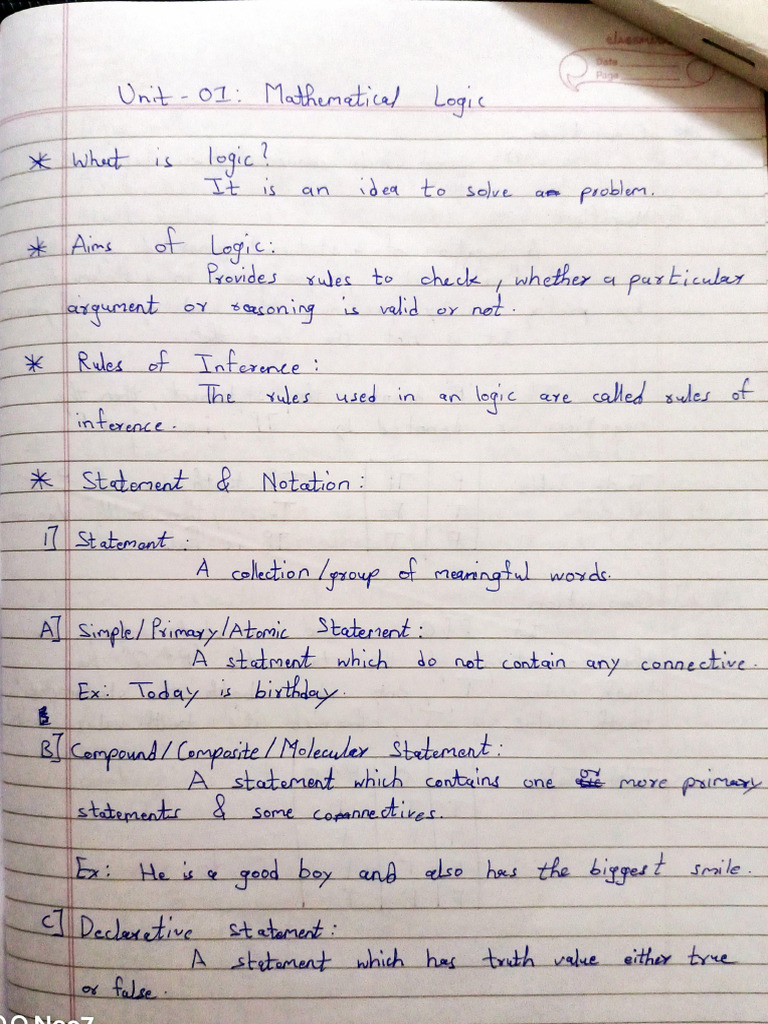 classmate
Date
Page
Unit - 01: Mathematical Logic
* What is logic?
It is an idea to solve a problem.
* Aims of Logic:
Provides rules to check, whether a particular
argument or reasoning is valid or not.
* Rules of Inference:
The rules used in an logic are called rules of
inference.
* Statement & Notation:
1] Statement:
A collection/group of meaningful words.
A] Simple/Primary/Atomic Statement:
A statment which do not contain any connective.
Ex: Today is birthday.
B] Compound/Composite/Molecular Statement:
A statement which contains one or more primary
statements & some connectives.
Ex: He is a good boy and also has the biggest smile.
C] Declarative statement:
A statement which has truth value either true
or false.